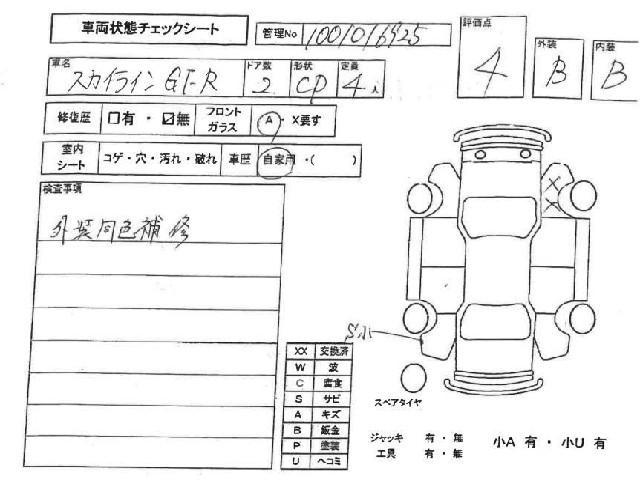 車両状態チェックシート
管理No 1001016925
評価点 4
外装 B
内装 B
車名 スカイライン GT-R
ドア数 2
形状 CP
定員 4人
修復歴 □有・☑無
フロントガラス A・X要す
室内シート コゲ・穴・汚れ・破れ
車歴 自家用・( )
検査事項
外装同色補修
XX
S小
XX 交換済
W 波
C 腐食
S サビ
A キズ
B 鈑金
P 塗装
U ヘコミ
スペアタイヤ
ジャッキ 有・無
工具 有・無
小A 有・小U 有